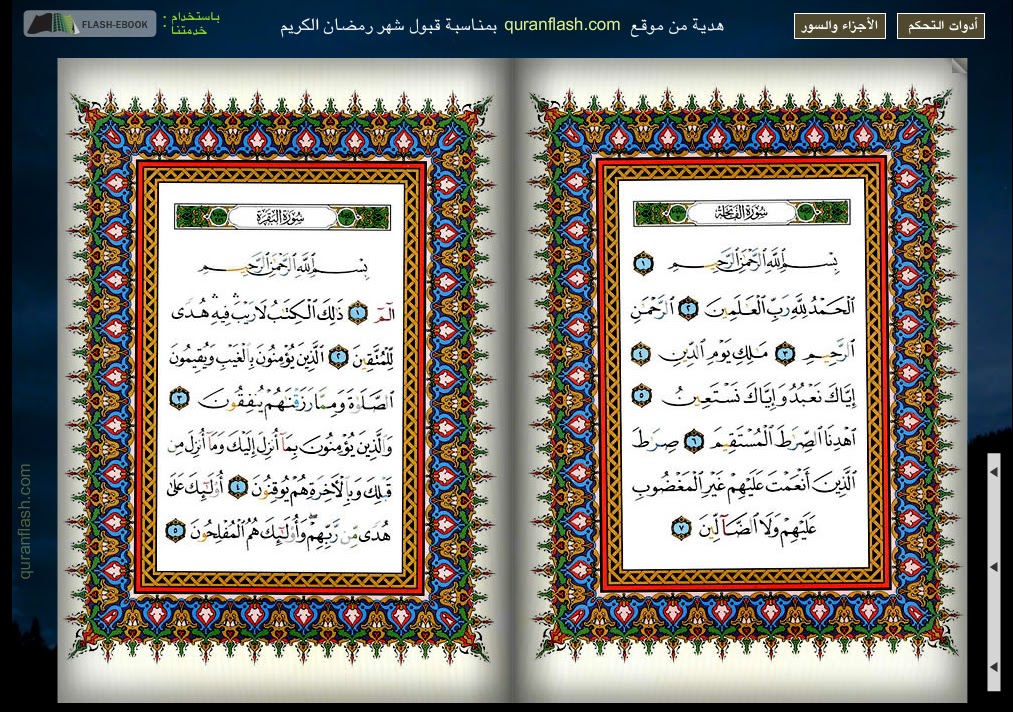 أدوات التحكم
الأجزاء والسور
هدية من موقع quranflash.com بمناسبة قبول شهر رمضان الكريم
باستخدام :
خدمتنا
FLASH-EBOOK
سُورَةُ الفَاتِحَةِ
بِسْمِ ٱللَّهِ ٱلرَّحْمَٰنِ ٱلرَّحِيمِ ١
ٱلْحَمْدُ لِلَّهِ رَبِّ ٱلْعَٰلَمِينَ ٢ ٱلرَّحْمَٰنِ
ٱلرَّحِيمِ ٣ مَٰلِكِ يَوْمِ ٱلدِّينِ ٤
إِيَّاكَ نَعْبُدُ وَإِيَّاكَ نَسْتَعِينُ ٥
ٱهْدِنَا ٱلصِّرَٰطَ ٱلْمُسْتَقِيمَ ٦ صِرَٰطَ
ٱلَّذِينَ أَنْعَمْتَ عَلَيْهِمْ غَيْرِ ٱلْمَغْضُوبِ
عَلَيْهِمْ وَلَا ٱلضَّآلِّينَ ٧
سُورَةُ البَقَرَةِ
بِسْمِ ٱللَّهِ ٱلرَّحْمَٰنِ ٱلرَّحِيمِ
الٓمٓ ١ ذَٰلِكَ ٱلْكِتَٰبُ لَا رَيْبَ ۛ فِيهِ ۛ هُدًى
لِّلْمُتَّقِينَ ٢ ٱلَّذِينَ يُؤْمِنُونَ بِٱلْغَيْبِ وَيُقِيمُونَ
ٱلصَّلَوٰةَ وَمِمَّا رَزَقْنَٰهُمْ يُنفِقُونَ ٣
وَٱلَّذِينَ يُؤْمِنُونَ بِمَآ أُنزِلَ إِلَيْكَ وَمَآ أُنزِلَ مِن
قَبْلِكَ وَبِٱلْءَاخِرَةِ هُمْ يُوقِنُونَ ٤ أُو۟لَٰٓئِكَ عَلَىٰ
هُدًى مِّن رَّبِّهِمْ ۖ وَأُو۟لَٰٓئِكَ هُمُ ٱلْمُفْلِحُونَ ٥
quranflash.com